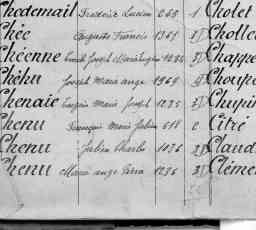 Chedemail Frédéric Lucien 665 1 Cholet
Chée Auguste Francis 1361 Chollet
Chéenne 1284 Chappe
Chéhu Joseph Marie ange 1969 Choupe
Chenaie Eugène Marie Joseph 1285 Chupin
Chenu François Marie Julien 618 2 Citré
Chenu Julien Charles 1036 Claud
Chenu Marie ange Pierre 1236 Clémen